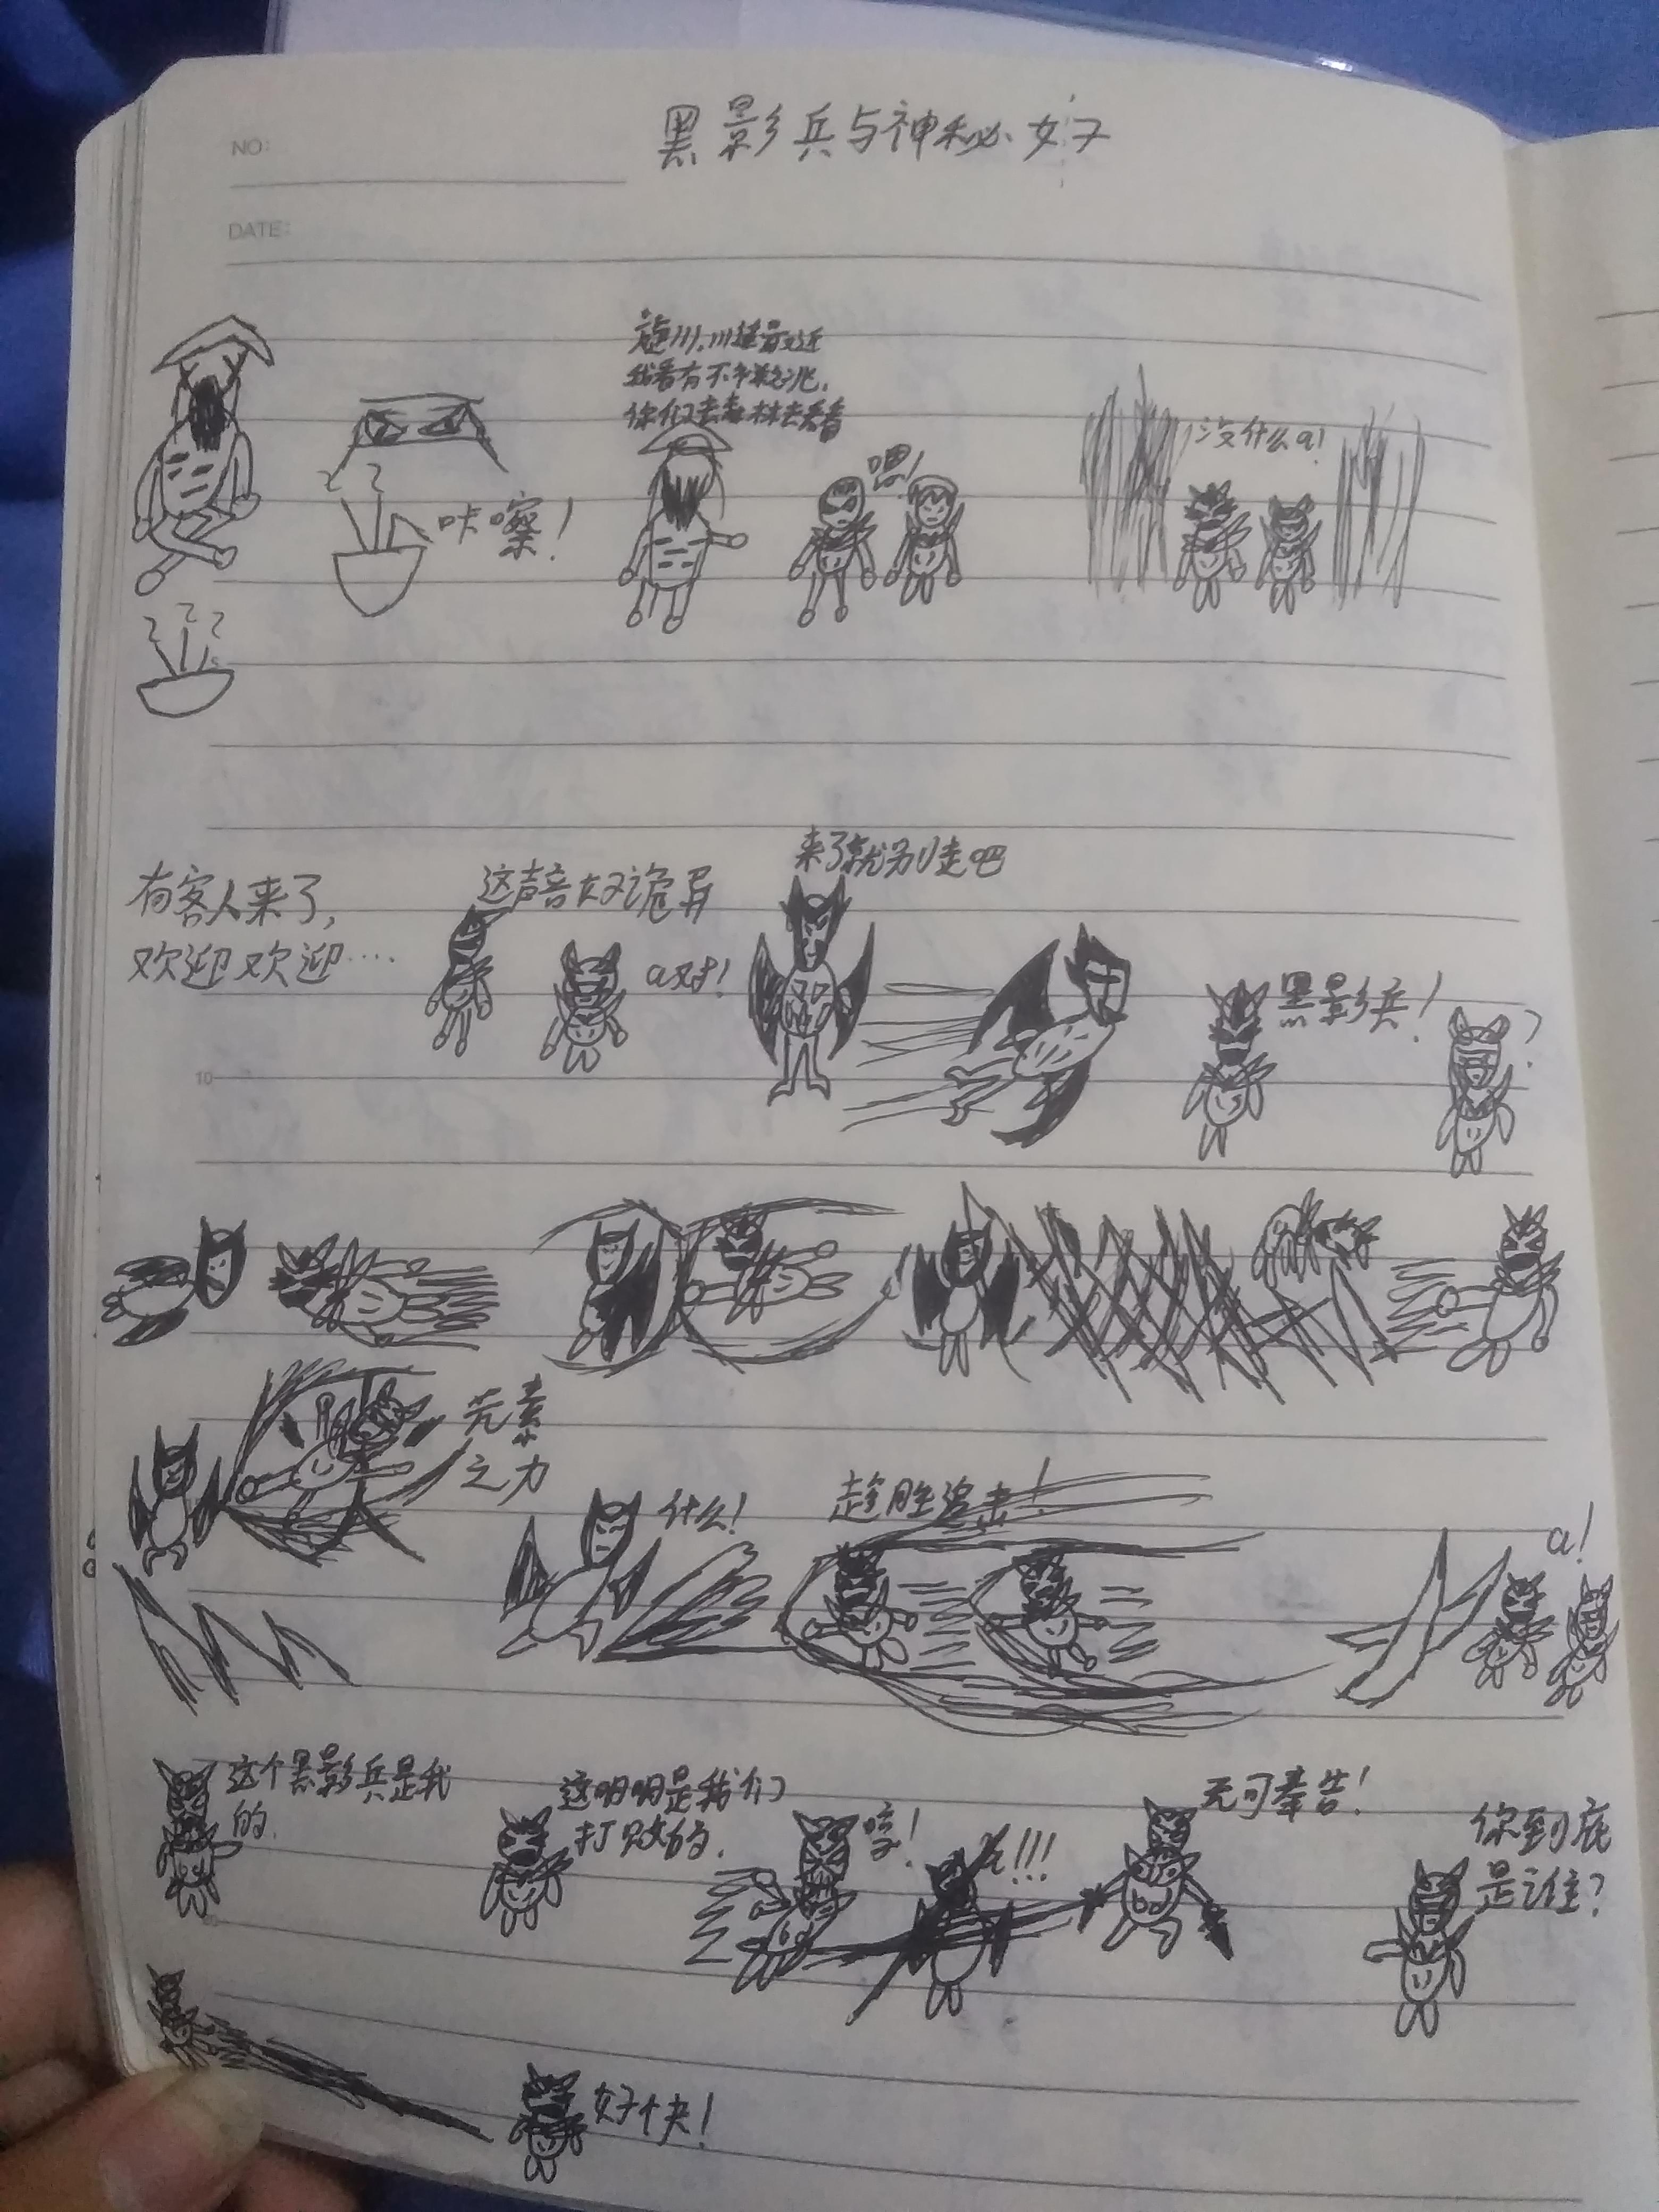 黑影兵与神秘女子
NO:
DATE:
你们去森林去看看
嗯!
没什么a!
咔嚓!
有客人来了,
欢迎欢迎····
这声音好诡异
a对!
来了就别走吧
黑影兵!
?
10
元素
之力
什么!
趁胜追击!
a!
这个黑影兵是我
的.
这明明是我们
打败的.
哼!
!!!
无可奉告!
你到底
是谁?
20
好快!